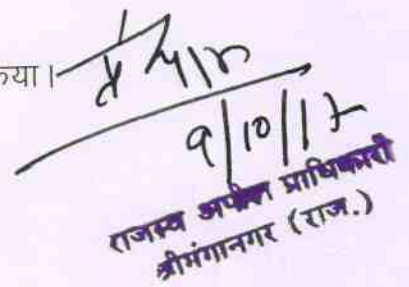 या।
9/10/17
राजस्व अपील प्राधिकारी
श्रीगंगानगर (राज.)